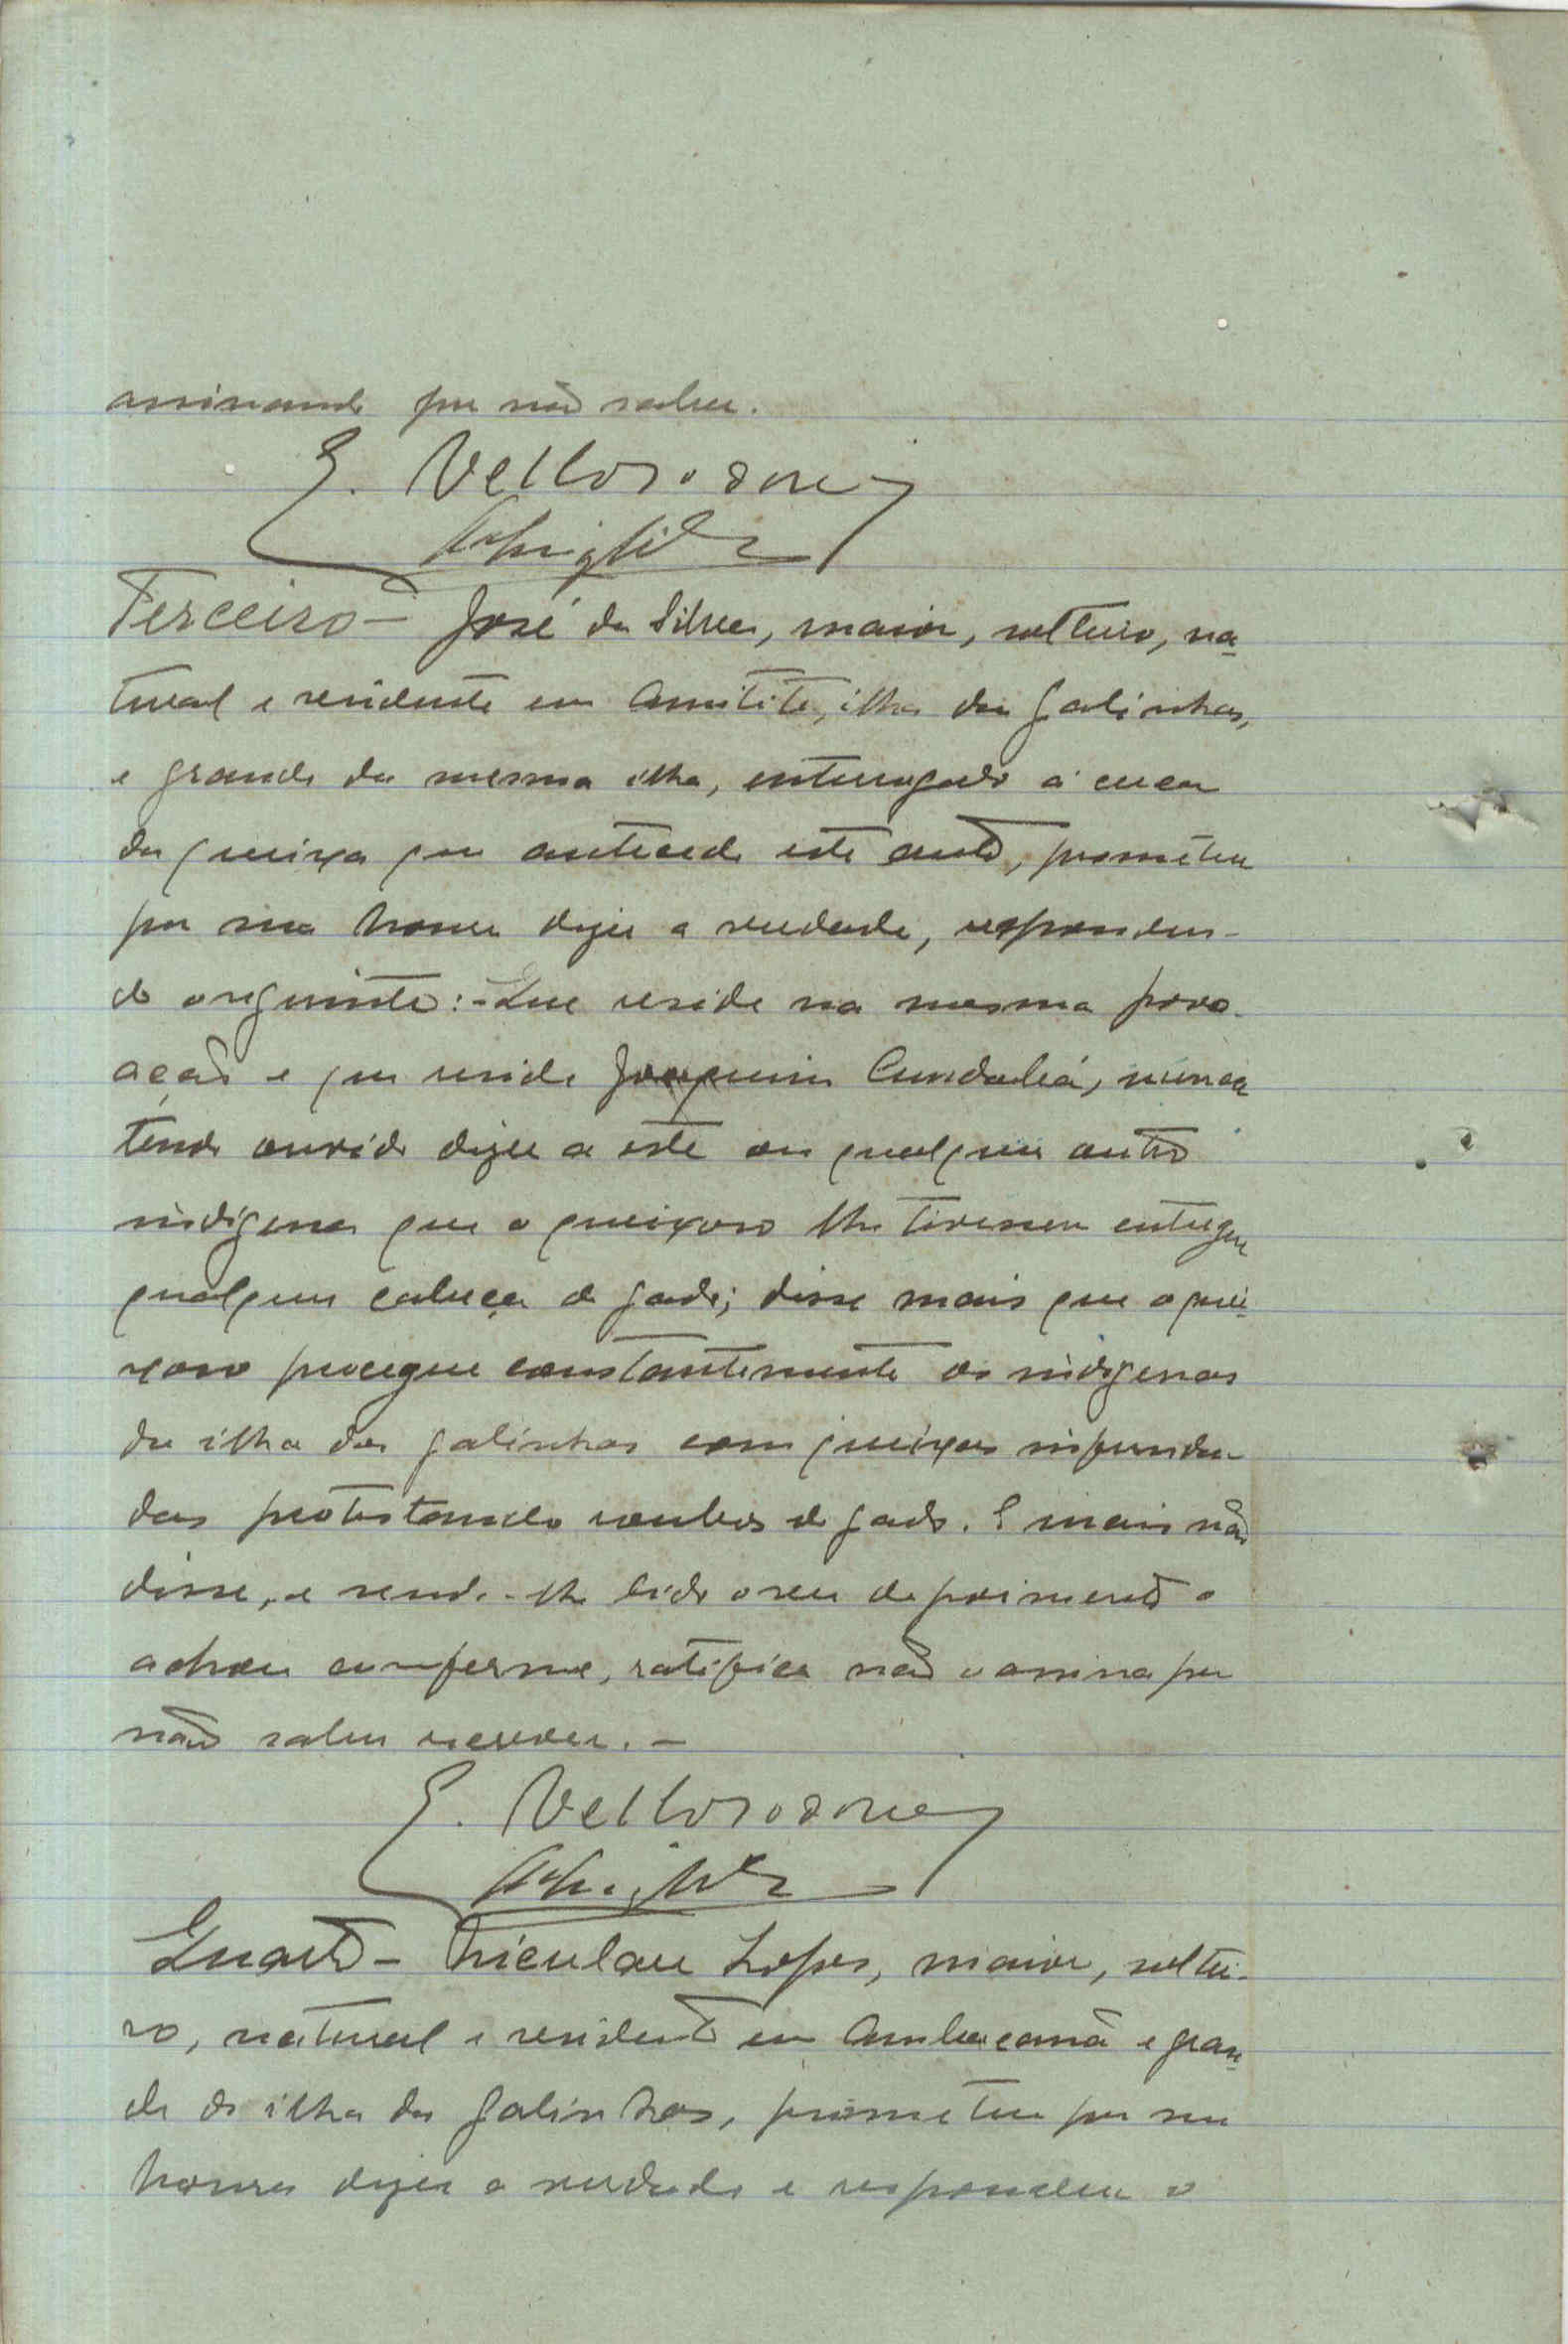 assinando por não saber.
E. Vellosodone
Terceiro - José da Silva, maior, solteiro, na-
tural e residente em Amitite, ilha das galinhas,
e grande da mesma ilha, interrogado á cerca
da queixa que antecede este auto, prometeu
por sua honra dizer a verdade, responden-
do o seguinte: - Que reside na mesma povo-
ação e que reside Joaquim Cundabá, nunca
tendo ouvido dizer a este ou qualquer outro
indigena que o queixoso lhe tivessem entregue
qualquer cabeça de gado; disse mais que o quei-
xoso precegue constantemente os indigenas
da ilha das galinhas com queixas infunda-
das protestando roubos de gado. E mais não
disse, e sendo-lhe lido o seu depoimento o
achou conforme, ratifica não o assina por
não saber escrever. -
E. Vellosodone
Quarto - Niculau Lopes, maior, soltei-
ro, natural e residente em Ambacanã e gran-
de da ilha das galinhas, prometeu por sua
honra dizer a verdade e respondeu o